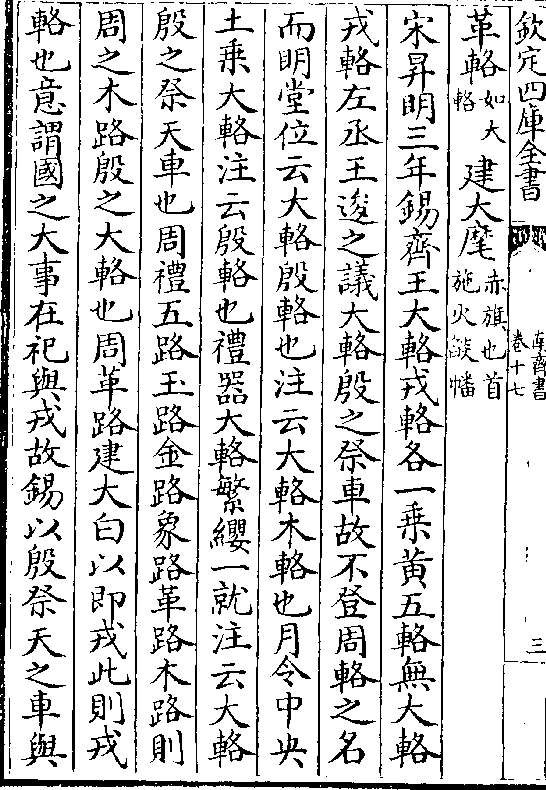 欽定四庫全書
南齊書
卷十七
三
革輅如大輅建大麾赤旗也首施火燄幡
宋昇明三年錫齊王大輅戎輅各一乘黄五輅無大輅
戎輅左丞王逡之議大輅殷之祭車故不登周輅之名
而明堂位云大輅殷輅也注云大輅木輅也月令中央
土乘大輅注云殷輅也禮器大輅繁纓一就注云大輅
殷之祭天車也周禮五路玉路金路象路革路木路則
周之木路殷之大輅也周革路建大白以即戎此則戎
輅也意謂國之大事在祀與戎故錫以殷祭天之車與